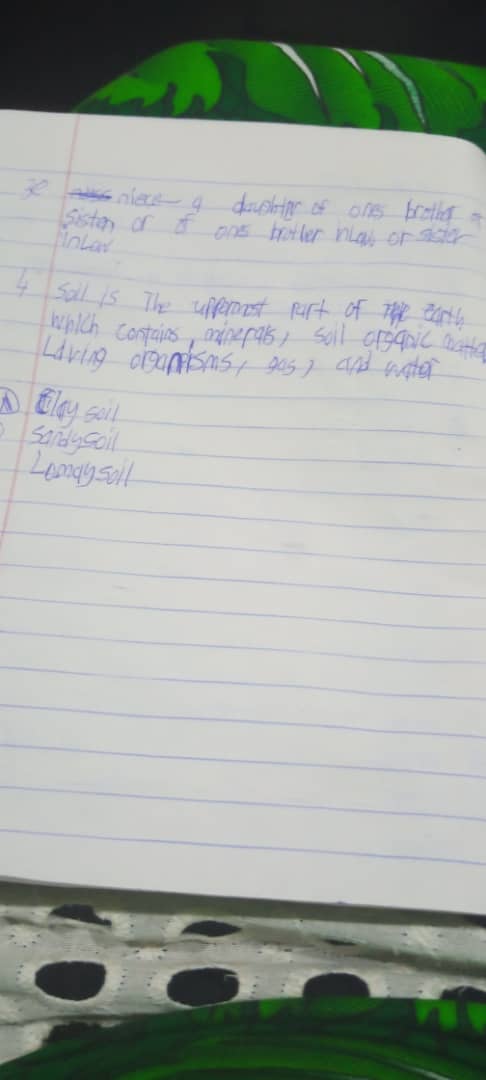 3e niece a daughter of ones brother or
sister or of ones brother inlaw or sister
inlaw
4 Soil is The uppermost part of the earth
which contains, minerals, soil organic matter
Living organisms, gas, and water
Clay soil
Sandy soil
Loamy soil